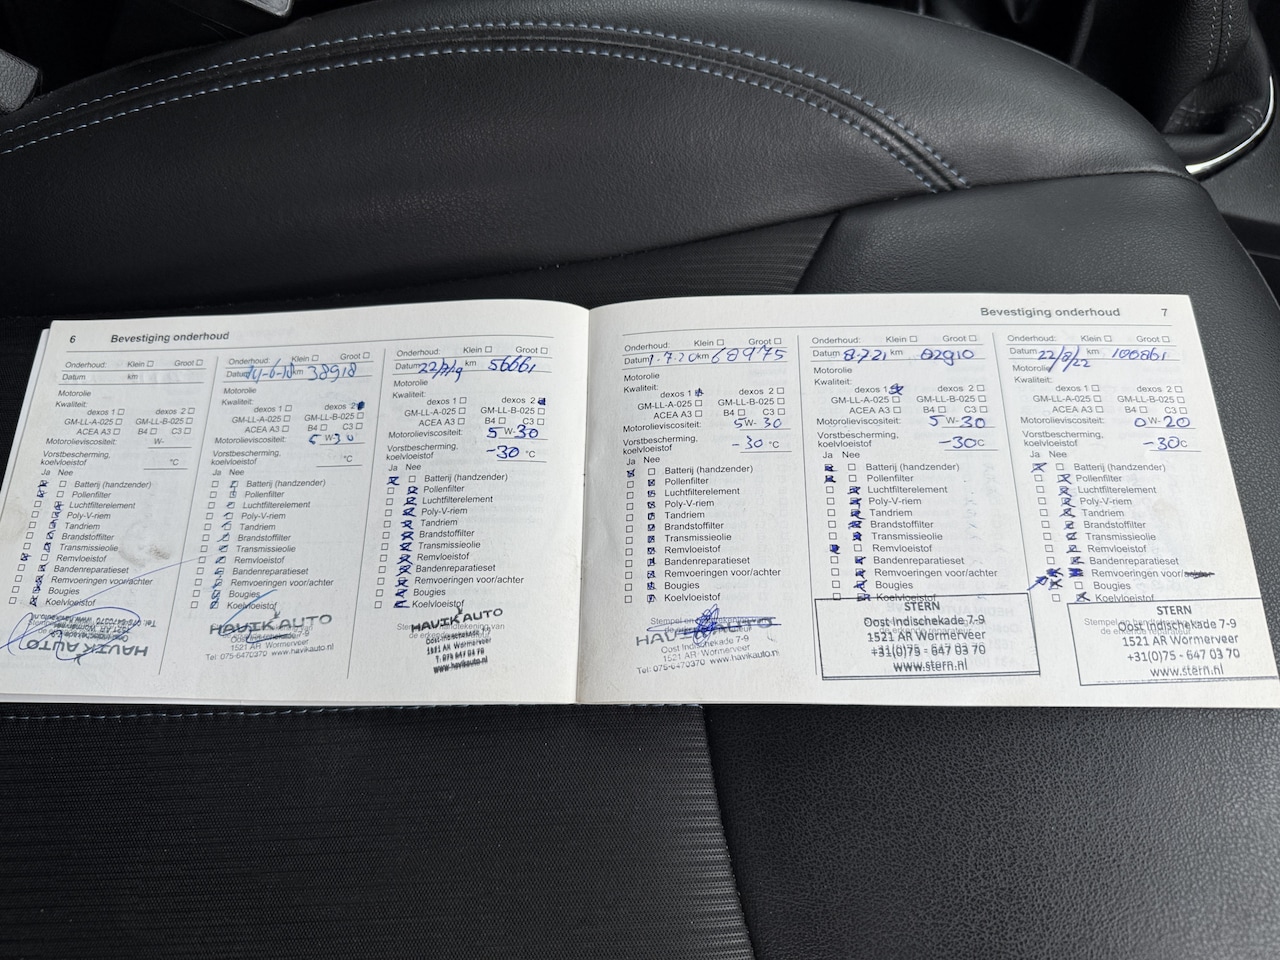 6 Bevestiging onderhoud
Onderhoud: Klein Groot
Datum km
Motorolie
Kwaliteit:
dexos 1 dexos 2
GM-LL-A-025 GM-LL-B-025
ACEA A3 B4 C3
Motorolieviscositeit: W-
Vorstbescherming,
koelvloeistof °C
Ja Nee
Batterij (handzender)
Pollenfilter
Luchtfilterelement
Poly-V-riem
Tandriem
Brandstoffilter
Transmissieolie
Remvloeistof
Bandenreparatieset
Remvoeringen voor/achter
Bougies
Koelvloeistof
HAVIK AUTO
Onderhoud: Klein Groot
Datum 14-6-18 km 38918
Motorolie
Kwaliteit:
dexos 1 dexos 2
GM-LL-A-025 GM-LL-B-025
ACEA A3 B4 C3
Motorolieviscositeit: 5 W-30
Vorstbescherming,
koelvloeistof °C
Ja Nee
Batterij (handzender)
Pollenfilter
Luchtfilterelement
Poly-V-riem
Tandriem
Brandstoffilter
Transmissieolie
Remvloeistof
Bandenreparatieset
Remvoeringen voor/achter
Bougies
Koelvloeistof
HAVIK AUTO
Oost Indischekade 7-9
1521 AR Wormerveer
Tel: 075-6470370 www.havikauto.nl
Onderhoud: Klein Groot
Datum km 56661
Motorolie
Kwaliteit:
dexos 1 dexos 2
GM-LL-A-025 GM-LL-B-025
ACEA A3 B4 C3
Motorolieviscositeit: 5 W-30
Vorstbescherming,
koelvloeistof -30 °C
Ja Nee
Batterij (handzender)
Pollenfilter
Luchtfilterelement
Poly-V-riem
Tandriem
Brandstoffilter
Transmissieolie
Remvloeistof
Bandenreparatieset
Remvoeringen voor/achter
Bougies
Koelvloeistof
HAVIK AUTO
Oost-Indischekade 7-9
1521 AR Wormerveer
T. 075 647 03 70
www.havikauto.nl
Bevestiging onderhoud 7
Onderhoud: Klein Groot
Datum 1.7.20 km 68975
Motorolie
Kwaliteit:
dexos 1 dexos 2
GM-LL-A-025 GM-LL-B-025
ACEA A3 B4 C3
Motorolieviscositeit: 5W-30
Vorstbescherming,
koelvloeistof -30 °C
Ja Nee
Batterij (handzender)
Pollenfilter
Luchtfilterelement
Poly-V-riem
Tandriem
Brandstoffilter
Transmissieolie
Remvloeistof
Bandenreparatieset
Remvoeringen voor/achter
Bougies
Koelvloeistof
Oost Indischekade 7-9
1521 AR Wormerveer
Tel: 075-6470370 www.havikauto.nl
Onderhoud: Klein Groot
Datum 8-7-21 km 82910
Motorolie
Kwaliteit:
dexos 1 dexos 2
GM-LL-A-025 GM-LL-B-025
ACEA A3 B4 C3
Motorolieviscositeit: 5 W-30
Vorstbescherming,
koelvloeistof -30°C
Ja Nee
Batterij (handzender)
Pollenfilter
Luchtfilterelement
Poly-V-riem
Tandriem
Brandstoffilter
Transmissieolie
Remvloeistof
Bandenreparatieset
Remvoeringen voor/achter
Bougies
Koelvloeistof
STERN
Oost Indischekade 7-9
1521 AR Wormerveer
+31(0)75 - 647 03 70
www.stern.nl
Onderhoud: Klein Groot
Datum 22/8/22 km 106861
Motorolie
Kwaliteit:
dexos 1 dexos 2
GM-LL-A-025 GM-LL-B-025
ACEA A3 B4 C3
Motorolieviscositeit: 0 W-20
Vorstbescherming,
koelvloeistof -30°C
Ja Nee
Batterij (handzender)
Pollenfilter
Luchtfilterelement
Poly-V-riem
Tandriem
Brandstoffilter
Transmissieolie
Remvloeistof
Bandenreparatieset
Remvoeringen voor/achter
Bougies
Koelvloeistof
STERN
Oost Indischekade 7-9
1521 AR Wormerveer
+31(0)75 - 647 03 70
www.stern.nl